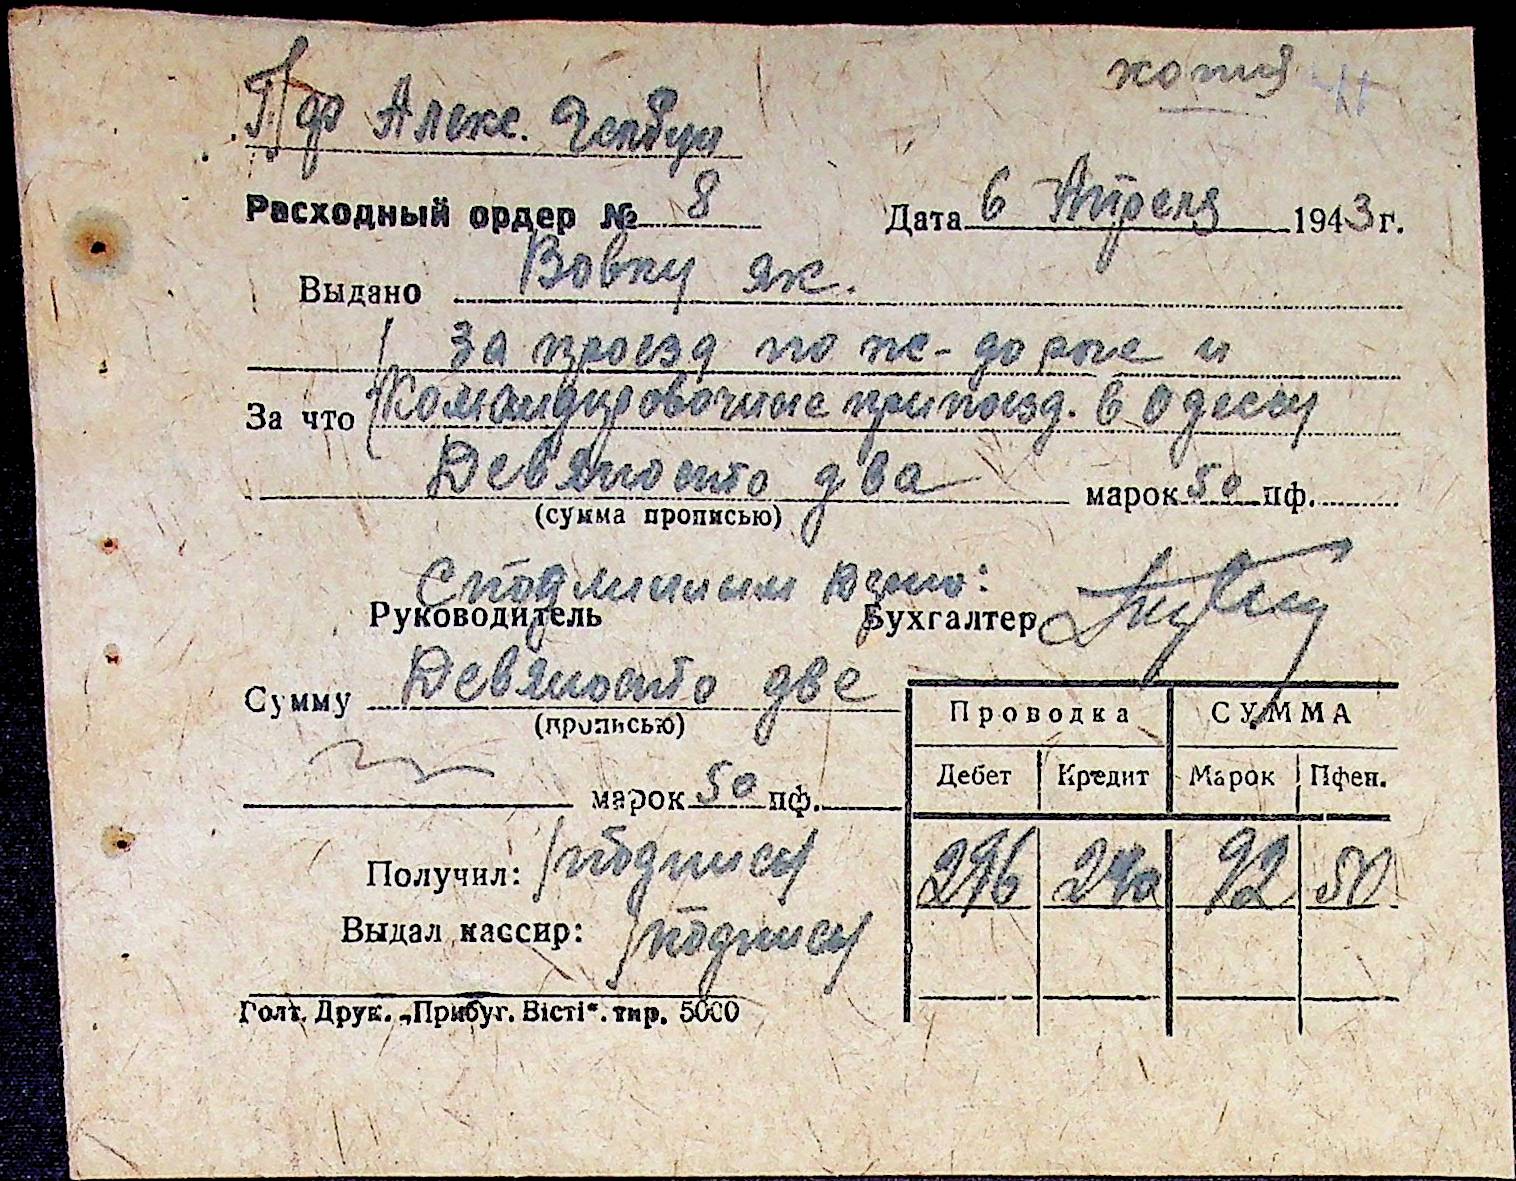 копия
Алекс.
Расходный ордер № 8 Дата 6 Апреля 1943 г.
Выдано Вовку Як.
за проезд по ж-дороге и
За что командировочные при поезд. в Одессу
Девяносто два марок 50 пф.
(сумма прописью)
С подлинным верно:
Руководитель Бухгалтер
Сумму Девяносто две
(прописью)
марок 50 пф.
Проводка СУММА
Дебет Кредит Марок Пфен.
92 50
Получил: /подпись/
Выдал кассир: /подпись/
Голт. Друк. „Прибуг. Вісті“. тир. 5000